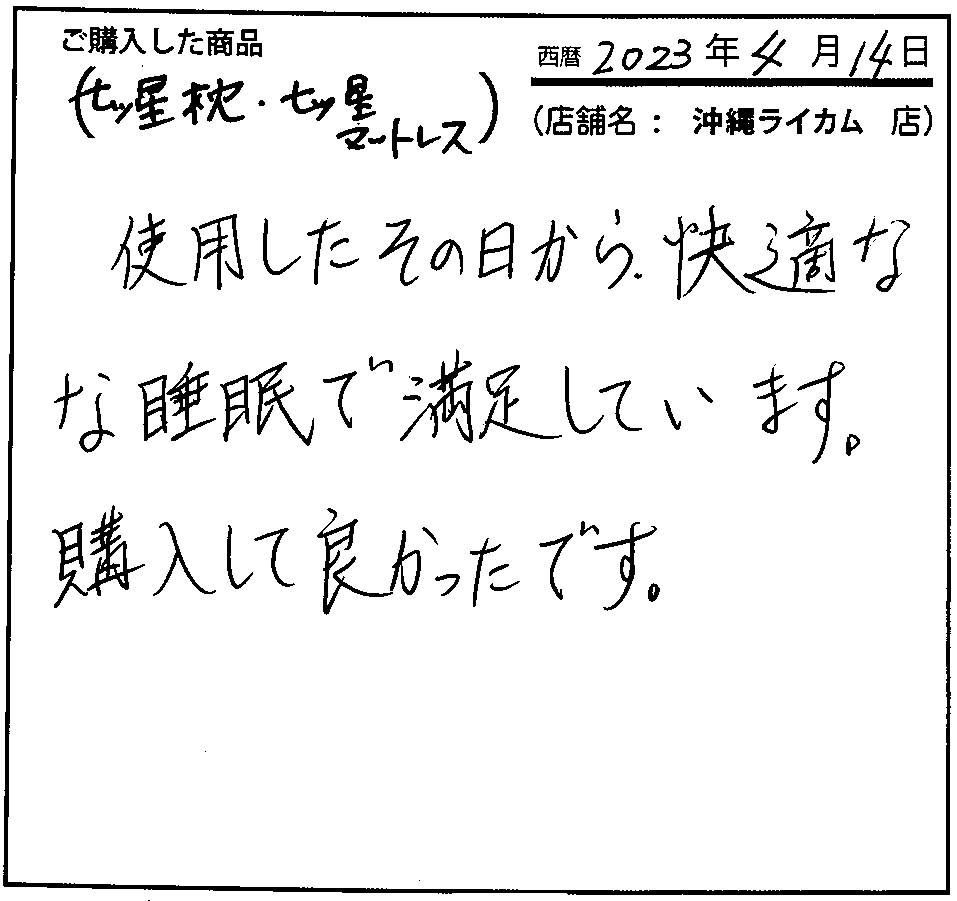 ご購入した商品
西暦 2023 年 4 月 14 日
(七ッ星枕・七ッ星
マットレス)
(店舗名: 沖縄ライカム 店)
使用したその日から、快適な
な睡眠で満足しています。
購入して良かったです。